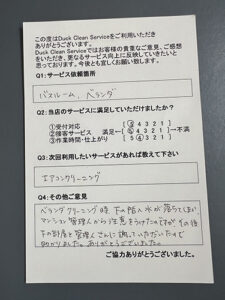 この度はDuck Clean Serviceをご利用いただき
ありがとうございます。
Duck Clean Serviceではお客様の貴重なご意見、ご感想
をいただき、更なるサービス向上に反映していきたいと
思っております。今後とも宜しくお願い致します。
Q1:サービス依頼箇所
バスルーム、ベランダ
Q2:当店のサービスに満足していただけましたか?
①受付対応 ⑤ 4 3 2 1
②接客サービス 満足ー 5 4 3 2 1 ー不満
③作業時間・仕上がり 5 ④ 3 2 1
Q3:次回利用したいサービスがあれば教えて下さい
エアコンクリーニング
Q4:その他ご意見
ベランダクリーニング時 下の階へ水が落ちてしまい
マンション管理人から注意をうけたのですが その後
下の部屋と管理人さんに謝っていただいたので
助かりました。ありがとうございました。
ご協力ありがとうございました。